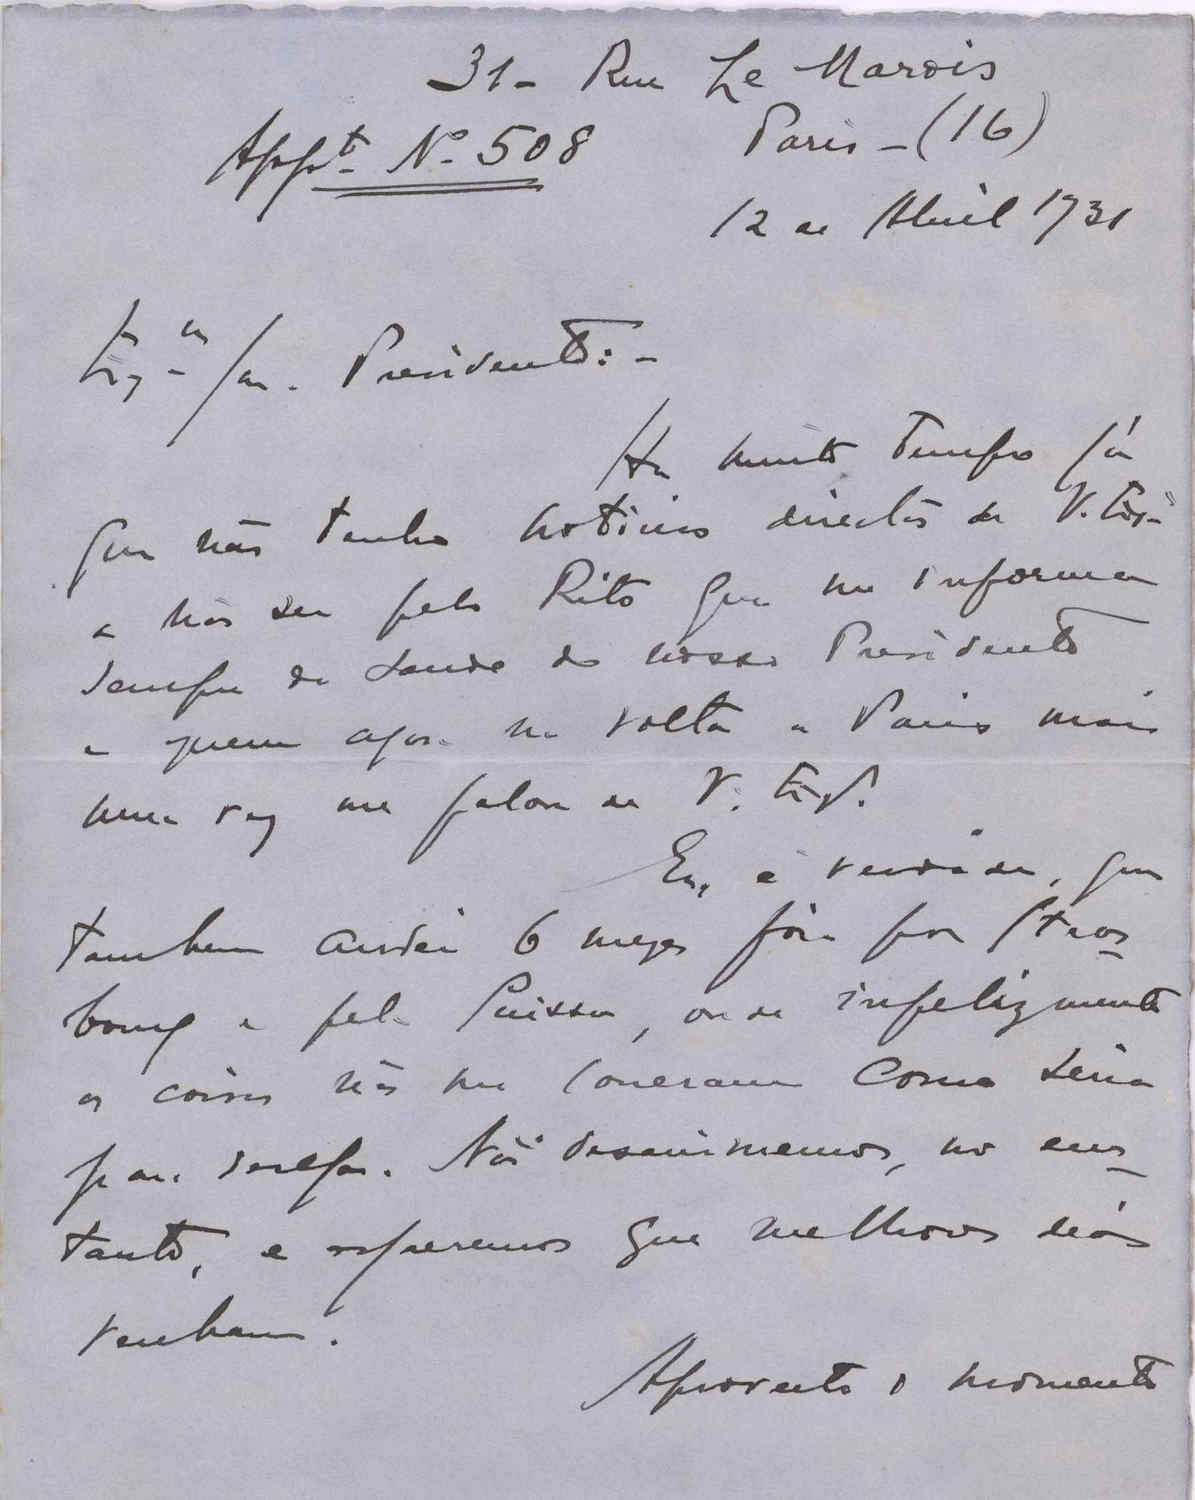 31 - Rue Le Marois
Appt. Nº 508 Paris - (16)
12 de Abril 1931
Exmo Snr. Presidente: -
Ha muito tempo já
que não tenho noticias directas de V. Exª
a não ser pelo Rito que me informa
sempre da saude do nosso Presidente
e quem agora na volta a Paris mais
uma vez me falou de V. Exª.
Eu, é verdade, que
tambem andei 6 mezes fóra por Stras-
bourg e pela Suissa, onde infelizmente
as coisas não me correram como seria
para desejar. Não desanimemos, no em-
tanto, e esperemos que melhores dias
venham.
Aproveito o momento